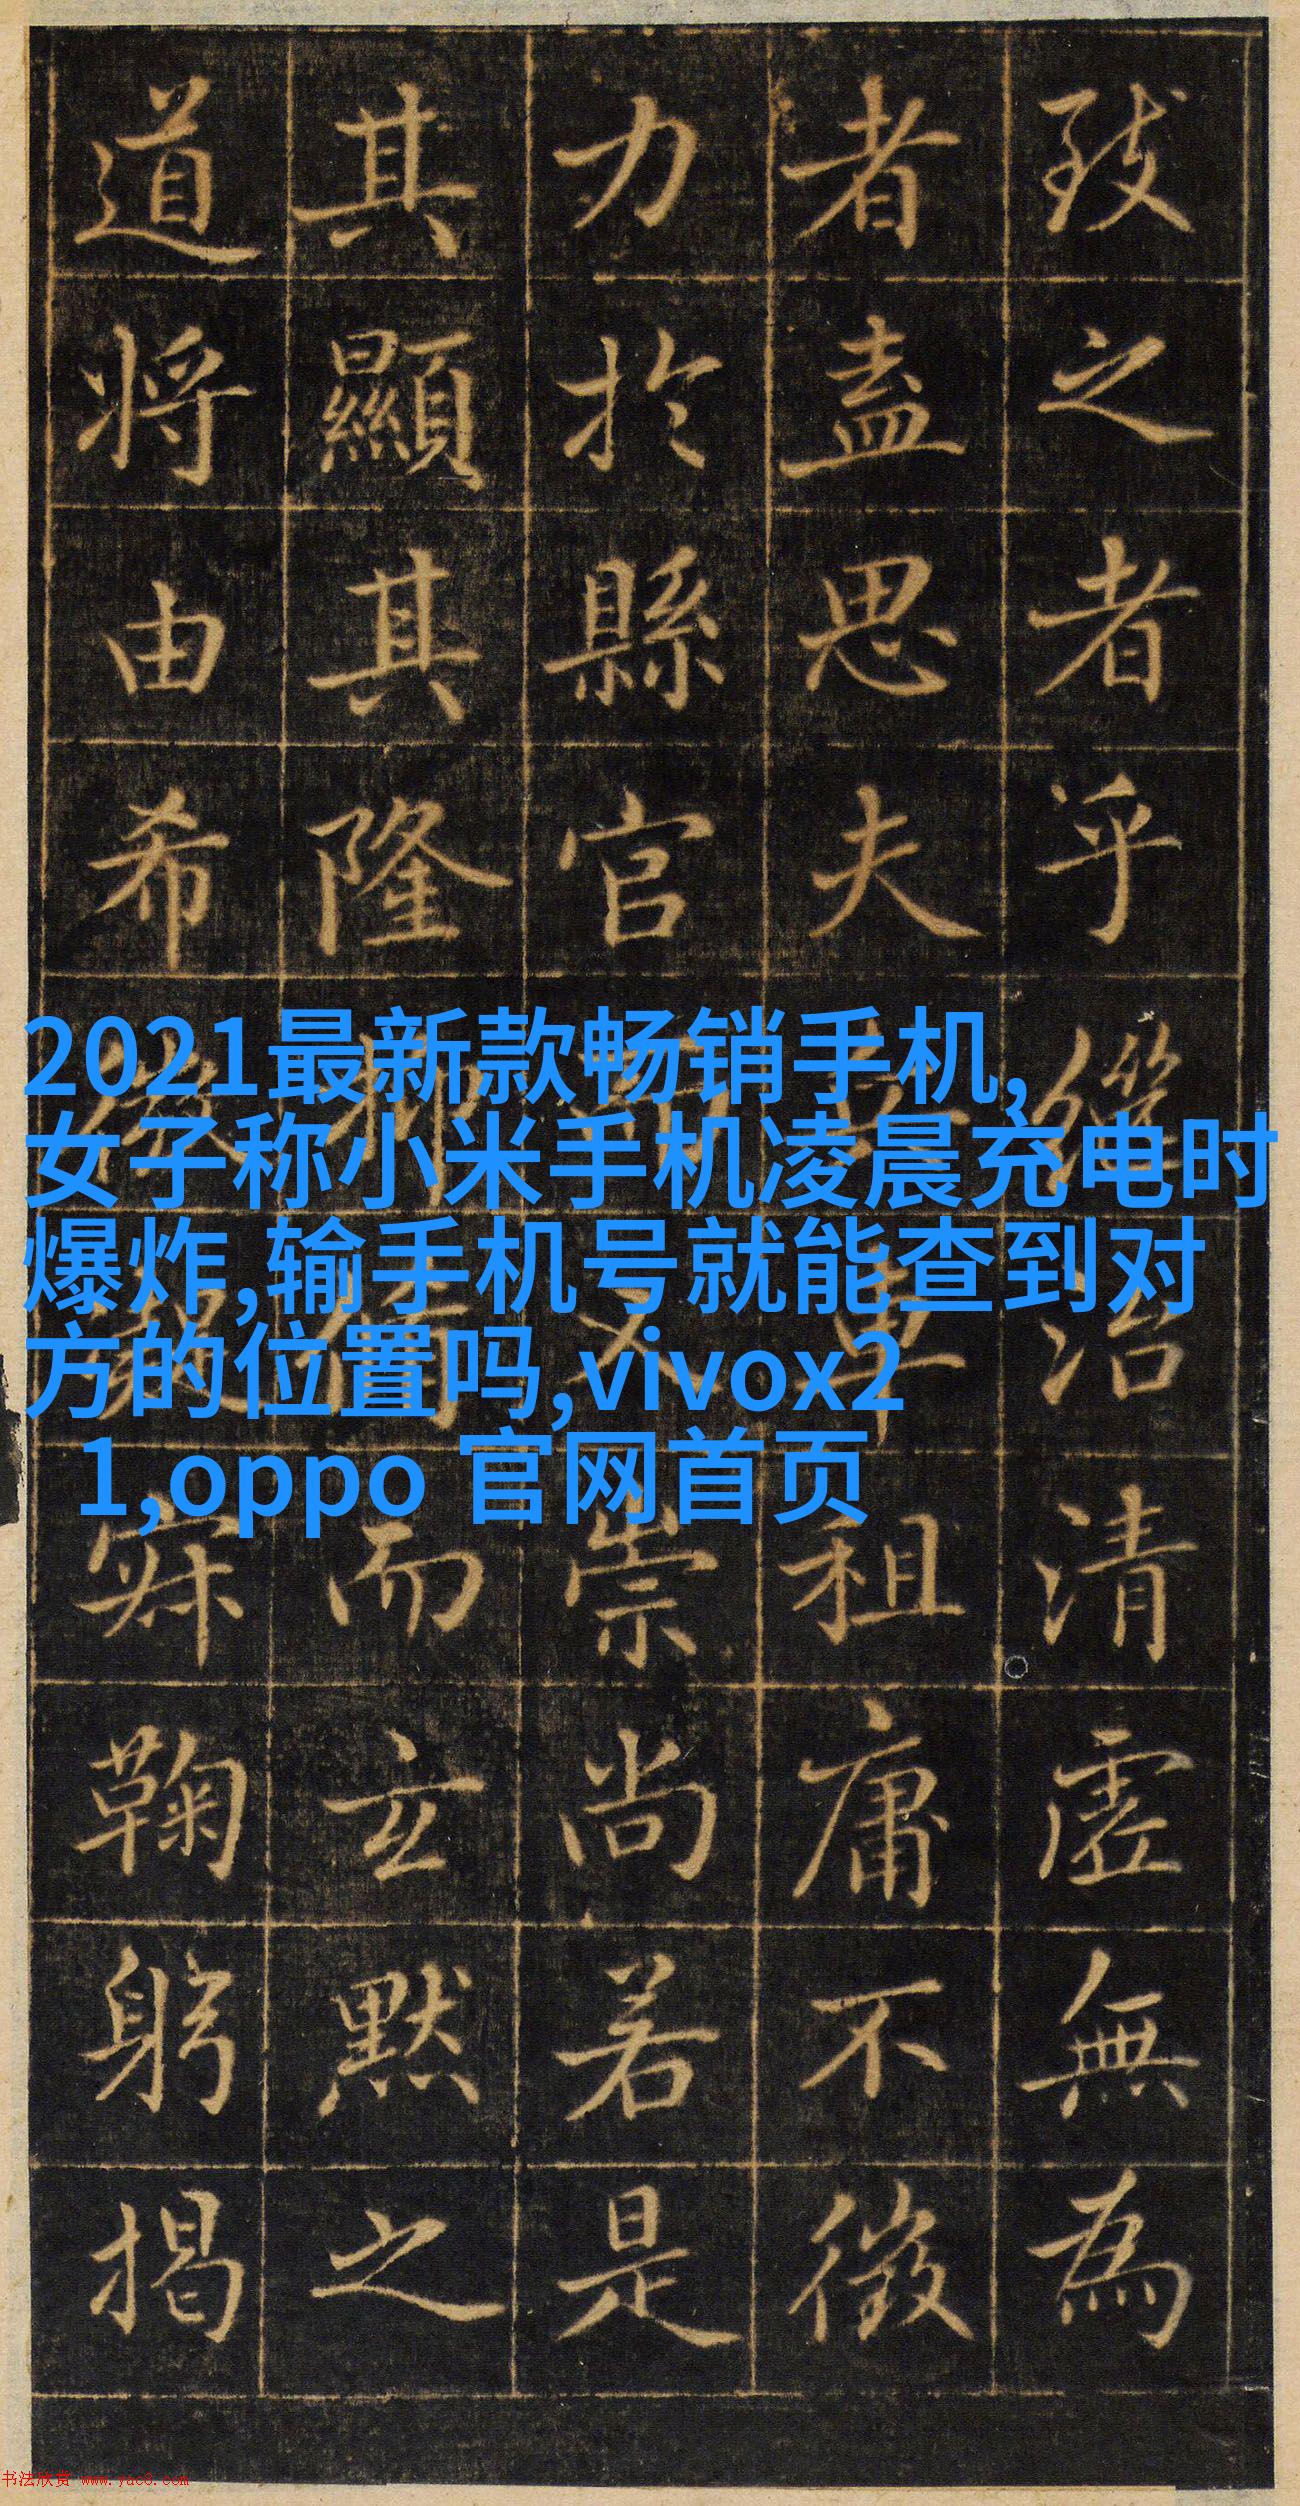 致之者乎
治清虛無為
者盖思夫
車租庸不徵
力扵縣官
又崇尚若是
其顯其隆
而玄默之
道将由希微
寂鞠躬揭
2021最新款畅销手机,
女子称小米手机凌晨充电时
爆炸,输手机号就能查到对
方的位置吗,vivox2
1,oppo 官网首页
书法欣赏 www.yac8.com